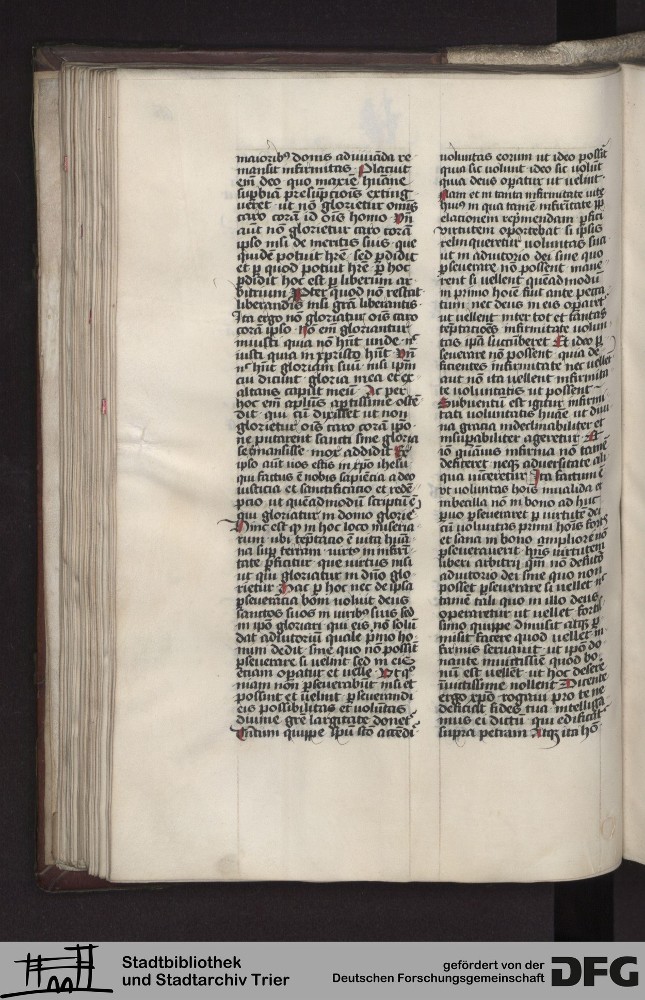 maioribꝰ donis adiuuāda re
mansit infirmitas Placuit
em̄ deo quo maxīe hūane
supbia presūpcionis exting
ueret ut nō glorietur omīs
caro corā id oīs homo Vn̄
aūt nō glorietur caro corā
ipso nisi de meritis suis que
quidē potuit hr̄e sed ꝑdidit
et ꝑ quod potuit hr̄e ꝑ hoc
ꝑdidit hoc est ꝑ liberum ar
bitrium Ꝓter quod nō restat
liberandis nisi gr̄a liberantis
Ita ergo nō gloriatur oīs caro
corā ipso Nō em̄ gloriantur
iniusti quia nō hn̄t unde nc̄
iusti quia in xpristo hn̄t Vn̄
nc̄ hn̄t gloriam suā nisi ipm̄
cui dicunt gloria mea et ex
altans caput meū Ac per
hoc em̄ apl̄us aptissime ostē
dit qui cū dixisset ut non
glorietur oīs caro corā ipō
ne putarent sancti sine gloria
se remansisse mox addidit Ex
ipso aūt uos estis in xp̄o ihesu
qui factus ē nobis sapiēcia a deo
iusticia et sanctificatio et redē
pcio ut quēadmodū scriptū ē
qui gloriatur in domo glorie
Hinc est ꝙ in hoc loco miseria
rum ubi tēptacio ē uita hūa
na sup terram uirtꝰ in infir
tate ꝑficitur que uirtus nisi
ut qui gloriatur in dn̄o glo
rietur Hac ꝑ hoc nec de ipsa
ꝑseuerācia boni uoluit deus
sanctos suos in uiribꝰ suis sed
in ipō gloriari qui eis nō solū
dat adiutoriū quale pmo ho
mini dedit sine quo nō possīt
ꝑseuerare si velint sed in eis
etiam oꝑatur et velle Vt qm̄
niam nōn ꝑseuerabūt nisi et
possint et uelint ꝑseuerandi
eis possibilitas et volūtas
diuine gr̄e largitate donet
Tantum quippe spū sc̄o accēdi
uoluntas eorum ut ideo possīt
quia sic uolunt ideo sic uolūt
quia deus oꝑatur ut uelint
Nam et in tanta infirmitate uite
huiꝰ in qua tamē infirītate ꝓp
elationem repm̄endam ꝑfici
uirtutem oportebat si ipsis
relinqueretur uoluntas sua
ut in adiutorio dei sine quo
ꝑseuerare nō possent mane
rent si vellent quēadmodū
in primo hoīe fuit ante pecca
tum nec deus in eis oꝑaret
ut vellent inter tot et tantas
tēptacōes infirmitate uolun
tas ipā sucūberet Et ideo ꝑ
seuerare nō possent quia de
ficientes infirmitate nec vellēt
aut nōn ita vellent infirmita
te voluntatis ut possent
Subuentū est igitur infirmi
tati voluntatis hūane ut diui
na gracia indeclinabiliter et
insupabiliter ageretur Et
iō quāuis infirma nō tamē
deficeret neqꝫ aduersitate ali
qua vinceretur Ita factum ē
ut uoluntas hoīs inualida et
imbecilla nō in bono ad huc
ꝑuo ꝑseueraret ꝑ virtutē dei
cū voluntas primi hoīs fortis
et sana in bono ampliore nō
ꝑseuerauerit hn̄s uirtutem
liberi arbitrii qm̄ nō defuto
adiutorio dei sine quo non
posset ꝑseuerare si vellet nc̄
tamē tali quo in illo deus
operaretur ut vellet forti
simo quippe dimisit atqꝫ ꝑ
misit facere quod vellet in
firmis seruauit ut ipō do
nante inuictissiē quod bo
num est vellēt ut hoc desere
inuictissime nollent Dicente
ergo xp̄o rogaui pro te ne
deficiat fides tua intelliga
mus ei dictū qui edificat
supra petram Atqꝫ ita hō
Stadtbibliothek
und Stadtarchiv Trier
gefördert von der
Deutschen Forschungsgemeinschaft
DFG